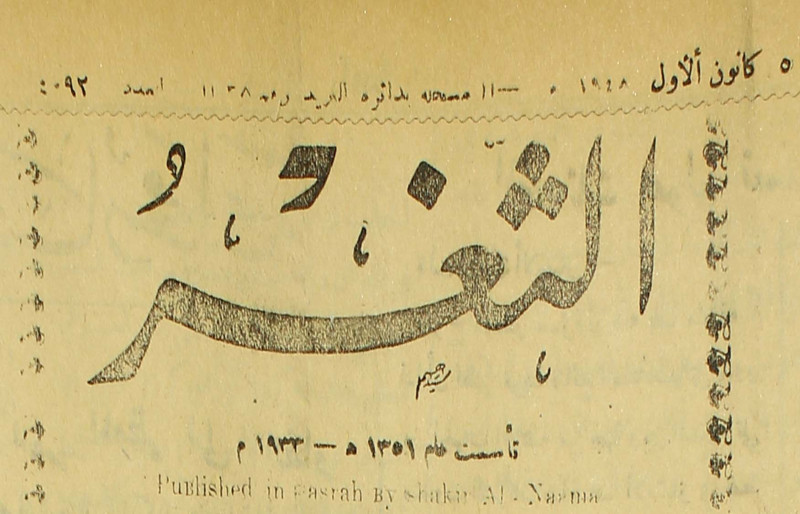 ٥ كانون ألأول ١٩٤٨ م — ١١ مسجلة بدائرة البريد رقم ١١٣٨ العدد ٤٠٩٢
الثغر
تأسست عام ١٣٥١ ه — ١٩٣٣ م
Published in Basrah By shakir Al - Naama